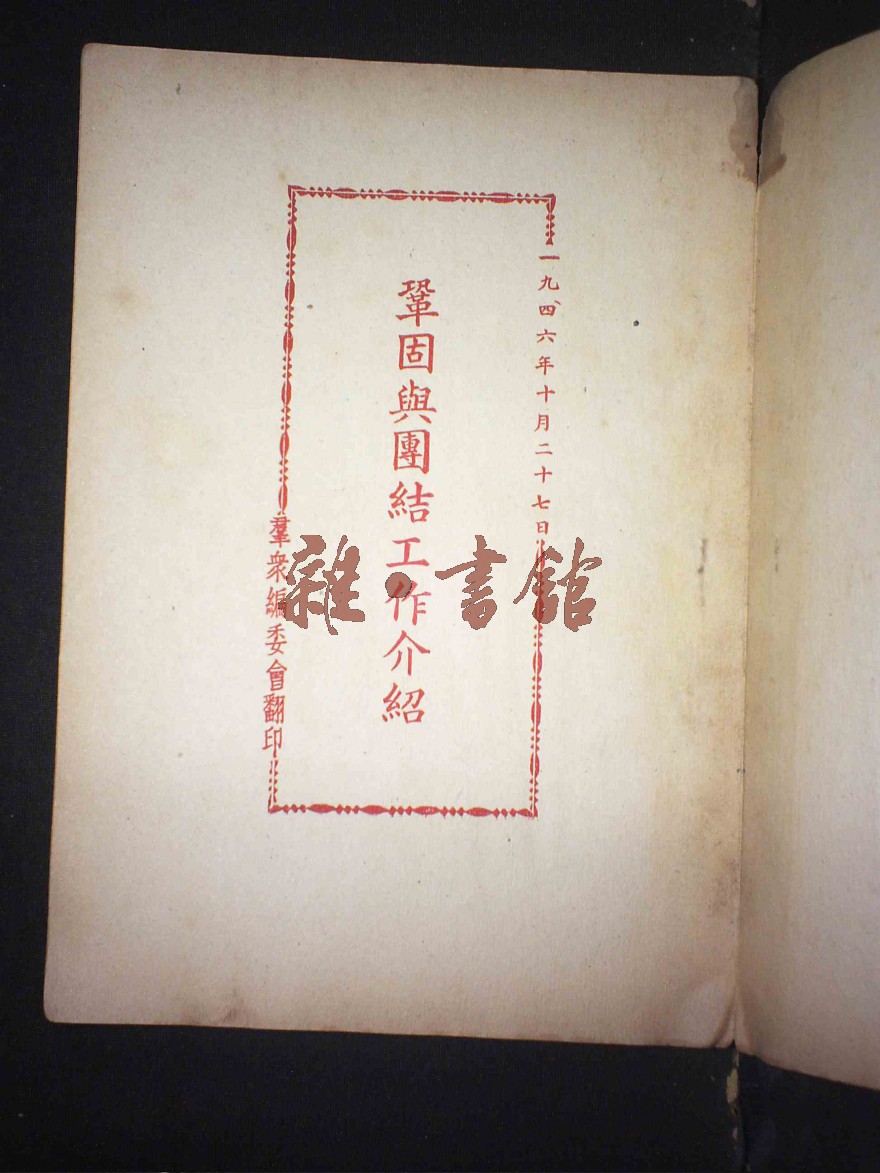 一九四六年十月二十七日
鞏固與團結工作介紹
羣衆編委會翻印
雜·書館